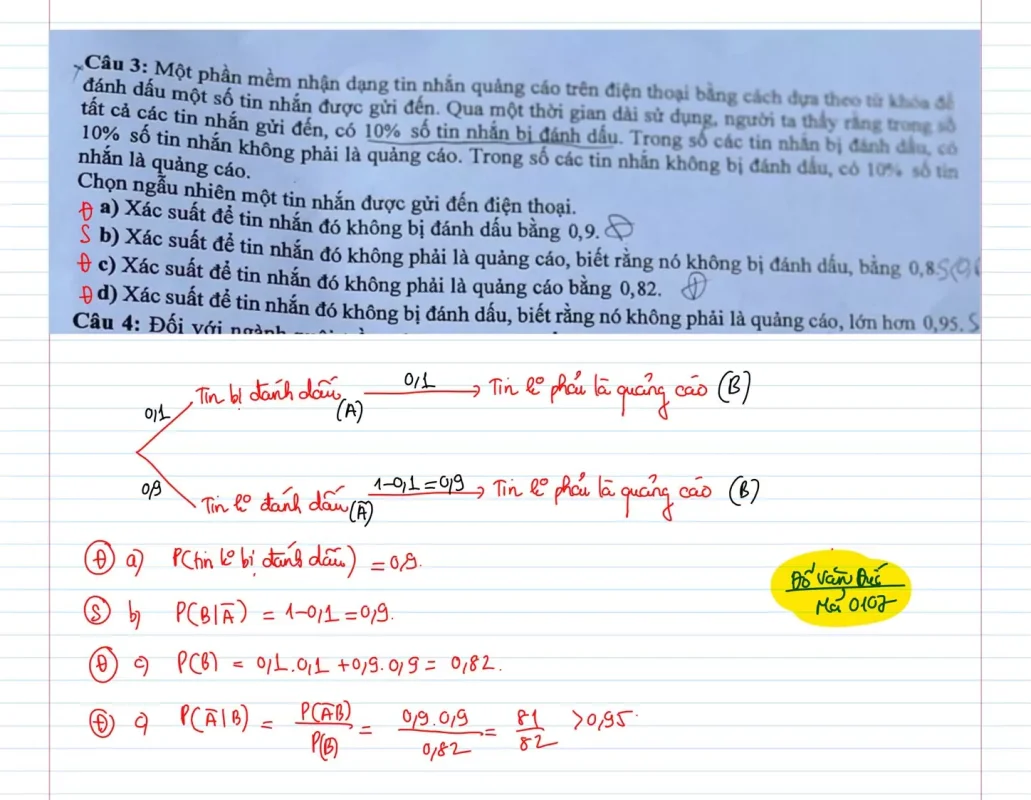 Câu 3: Một phần mềm nhận dạng tin nhắn quảng cáo trên điện thoại bằng cách dựa theo từ khóa để
đánh dấu một số tin nhắn được gửi đến. Qua một thời gian dài sử dụng, người ta thấy rằng trong số
tất cả các tin nhắn gửi đến, có 10% số tin nhắn bị đánh dấu. Trong số các tin nhắn bị đánh dấu, có
10% số tin nhắn không phải là quảng cáo. Trong số các tin nhắn không bị đánh dấu, có 10% số tin
nhắn là quảng cáo.
Chọn ngẫu nhiên một tin nhắn được gửi đến điện thoại.
Đ a) Xác suất để tin nhắn đó không bị đánh dấu bằng 0,9. Đ
S b) Xác suất để tin nhắn đó không phải là quảng cáo, biết rằng nó không bị đánh dấu, bằng 0,8. S
Đ c) Xác suất để tin nhắn đó không phải là quảng cáo bằng 0,82. Đ
Đ d) Xác suất để tin nhắn đó không bị đánh dấu, biết rằng nó không phải là quảng cáo, lớn hơn 0,95. S
Câu 4: Đối với ngành
0,1 Tin bị đánh dấu (A) 0,1 Tin ko phải là quảng cáo (B)
0,9 Tin ko đánh dấu (A̅) 1-0,1=0,9 Tin ko phải là quảng cáo (B)
Đ a) P(tin ko bị đánh dấu) = 0,9.
Đỗ Văn Đức
Mã 0107
S b) P(B|A̅) = 1-0,1=0,9.
Đ c) P(B) = 0,1.0,1 + 0,9.0,9 = 0,82.
Đ c) P(A̅|B) = P(A̅B)/P(B) = 0,9.0,9/0,82 = 81/82 > 0,95.